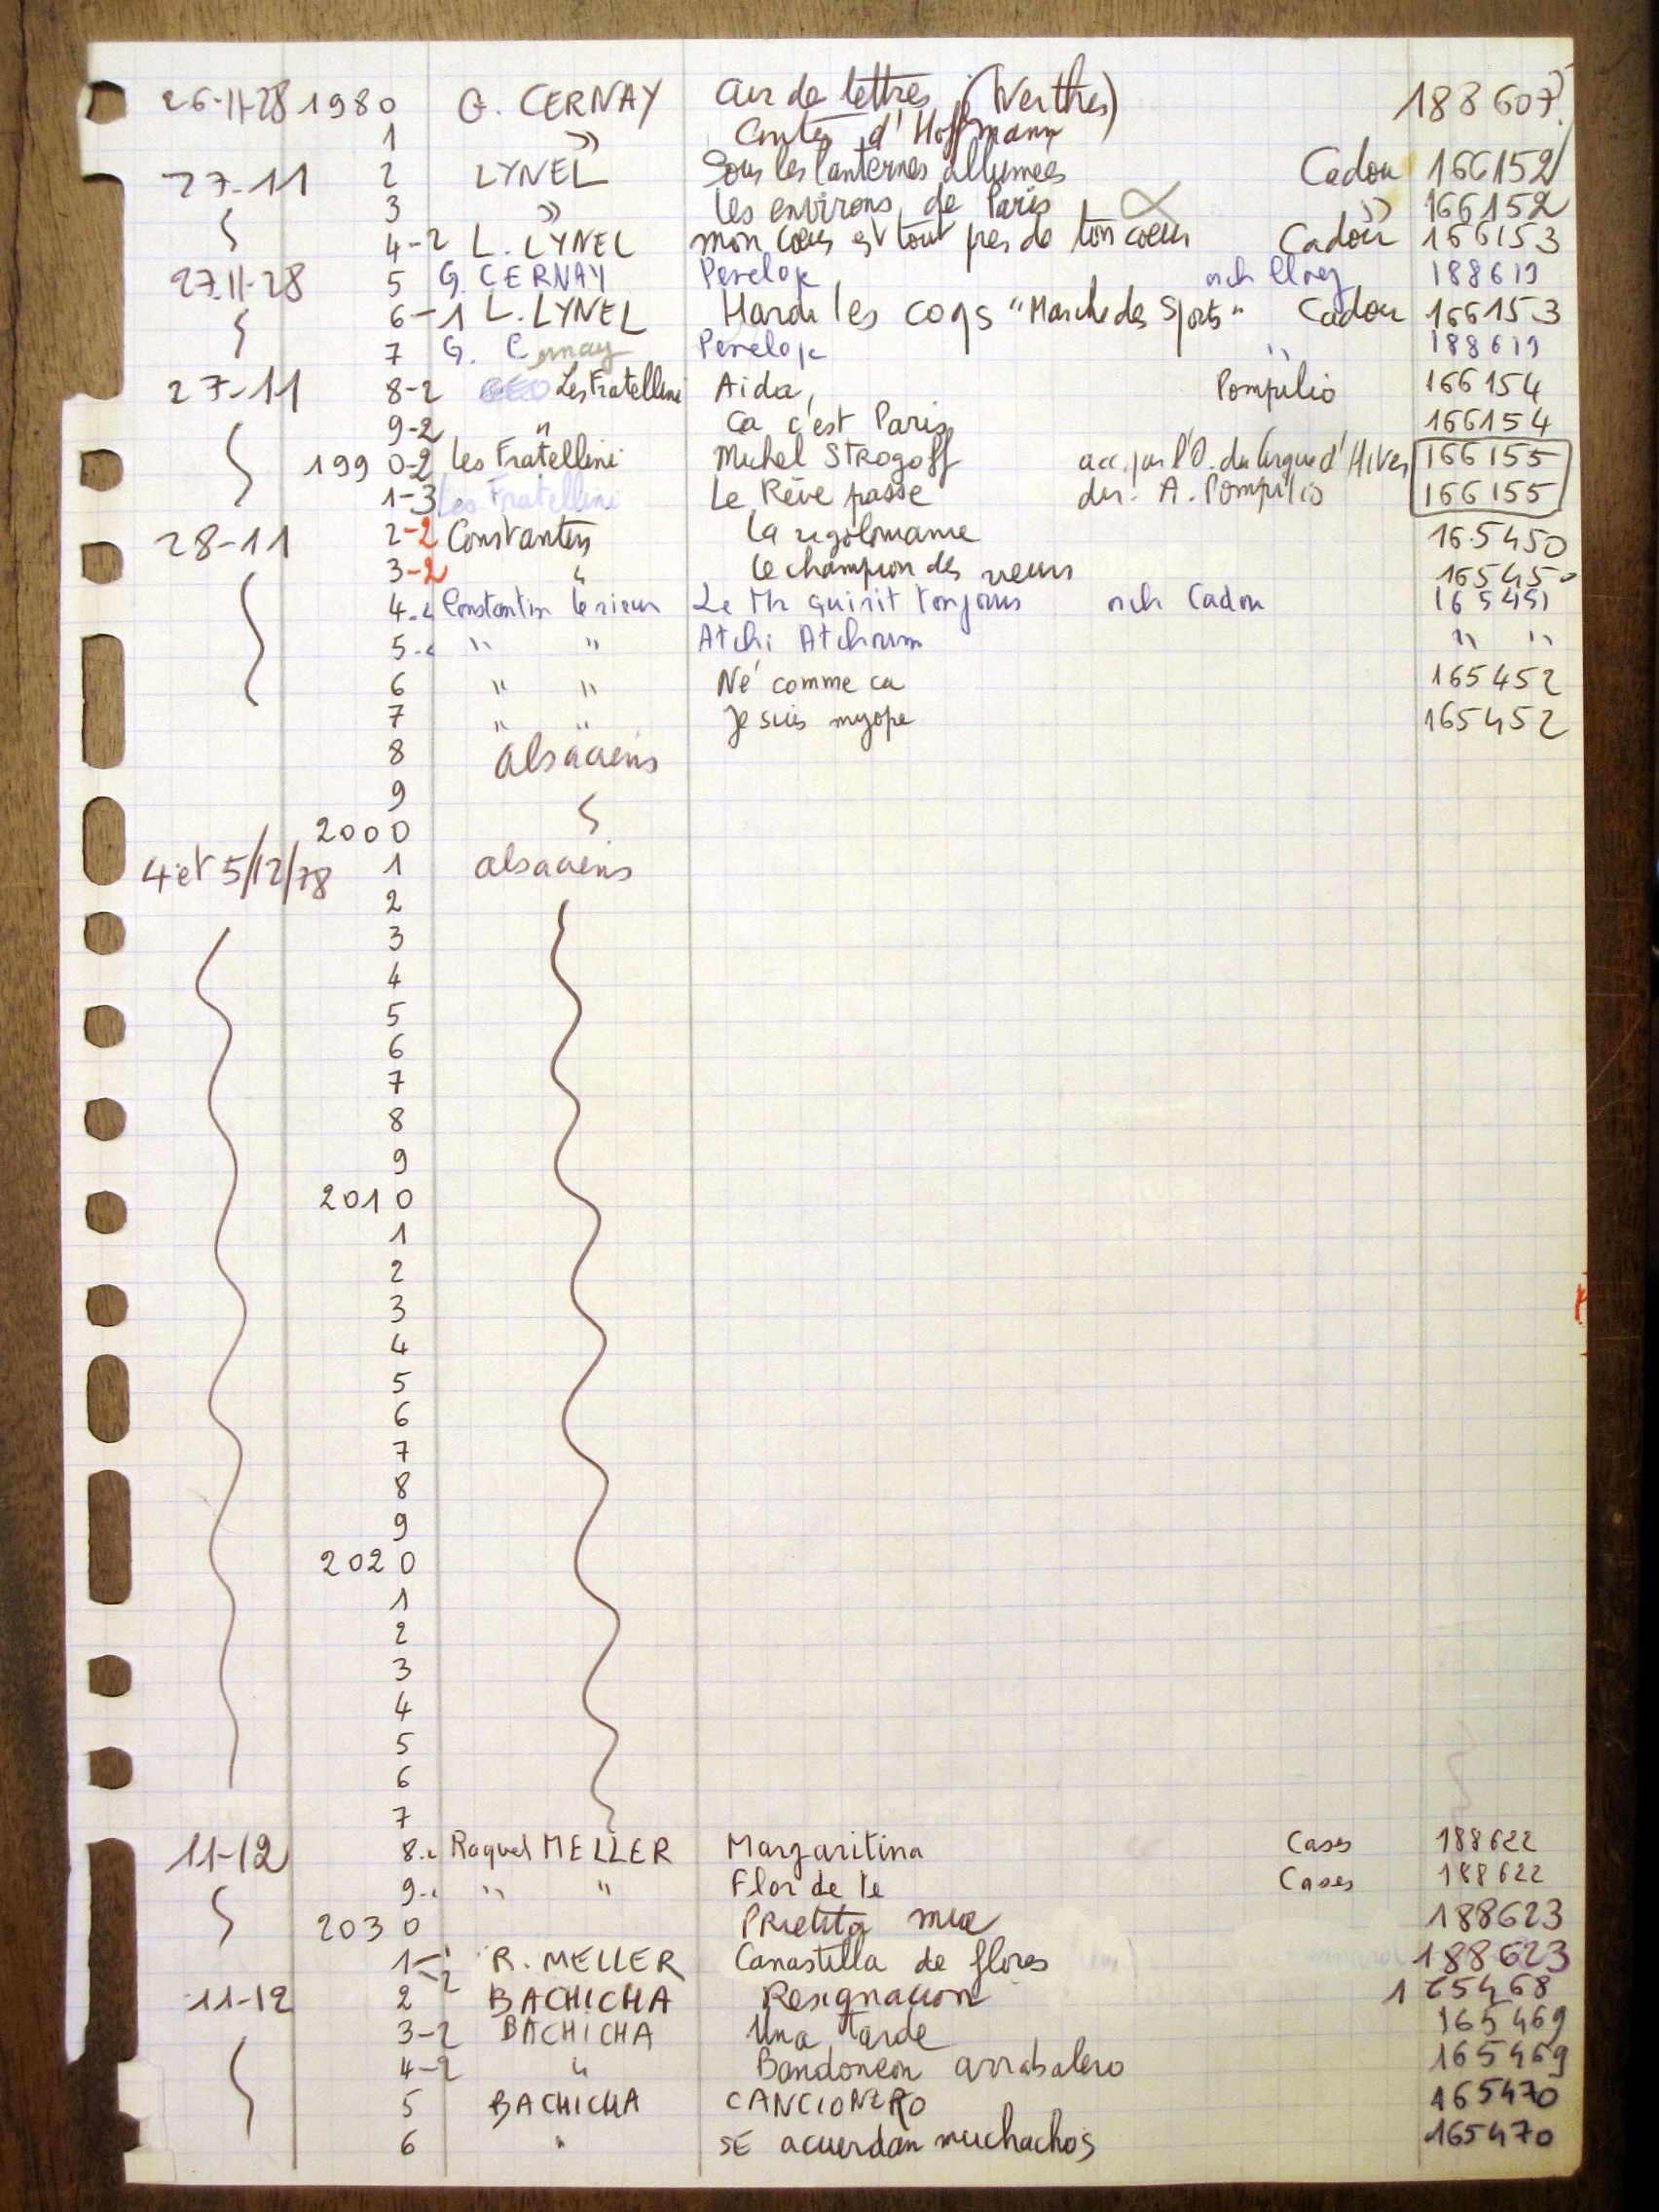 26-11-28 1980 G. CERNAY Air de lettres (Werther) 188607
1 » Contes d'Hoffmann
27-11 2 LYNEL Sous les lanternes allumées Cadou 166152
3 » les environs de Paris » 166152
4-2 L. LYNEL mon coeur est tout pres de ton coeur Cadou 166153
27.11-28 5 G. CERNAY Penelope orch 188619
6-1 L. LYNEL Hardi les coqs "Marche des Sports" Cadou 166153
7 G. Cernay Penelope " 188619
27-11 8-2 Les Fratellini Aida, Pompilio 166154
9-2 " Ca c'est Paris 166154
1990-2 les Fratellini Michel STROGOFF acc. par l'O. du Cirque d'Hiver 166155
1-3 Les Fratellini Le Rêve passe dir. A. Pompilio 166155
28-11 2-2 Constantin la rigolomanie 165450
3-2 " le champion des rieurs 165450
4-2 Constantin le rieur Le Mr qui rit toujours orch Cadou 165451
5-2 " " Atchi Atchoum " "
6 " " Né comme ca 165452
7 " " Je suis myope 165452
8 alsaciens
9
2000
4 et 5/12/28 1 alsaciens
2
3
4
5
6
7
8
9
2010
1
2
3
4
5
6
7
8
9
2020
1
2
3
4
5
6
7
11-12 8-2 Raquel MELLER Margaritina Cases 188622
9-2 " " Flor de te Cases 188622
2030 Prietita mia 188623
1-2 R. MELLER Canastilla de flores 188623
11-12 2 BACHICHA Resignacion 165468
3-2 BACHICHA Una tarde 165469
4-2 " Bandoneon arrabalero 165469
5 BACHICHA CANCIONERO 165470
6 " SE acuerdan muchachos 165470